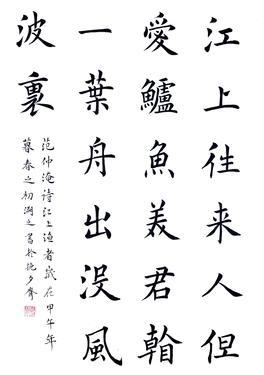 江上往来人但
愛鱸魚美君
一葉舟出没風
波裏
范仲淹詩江上渔者歲在甲午年
暮春之初湖之書於夕齋